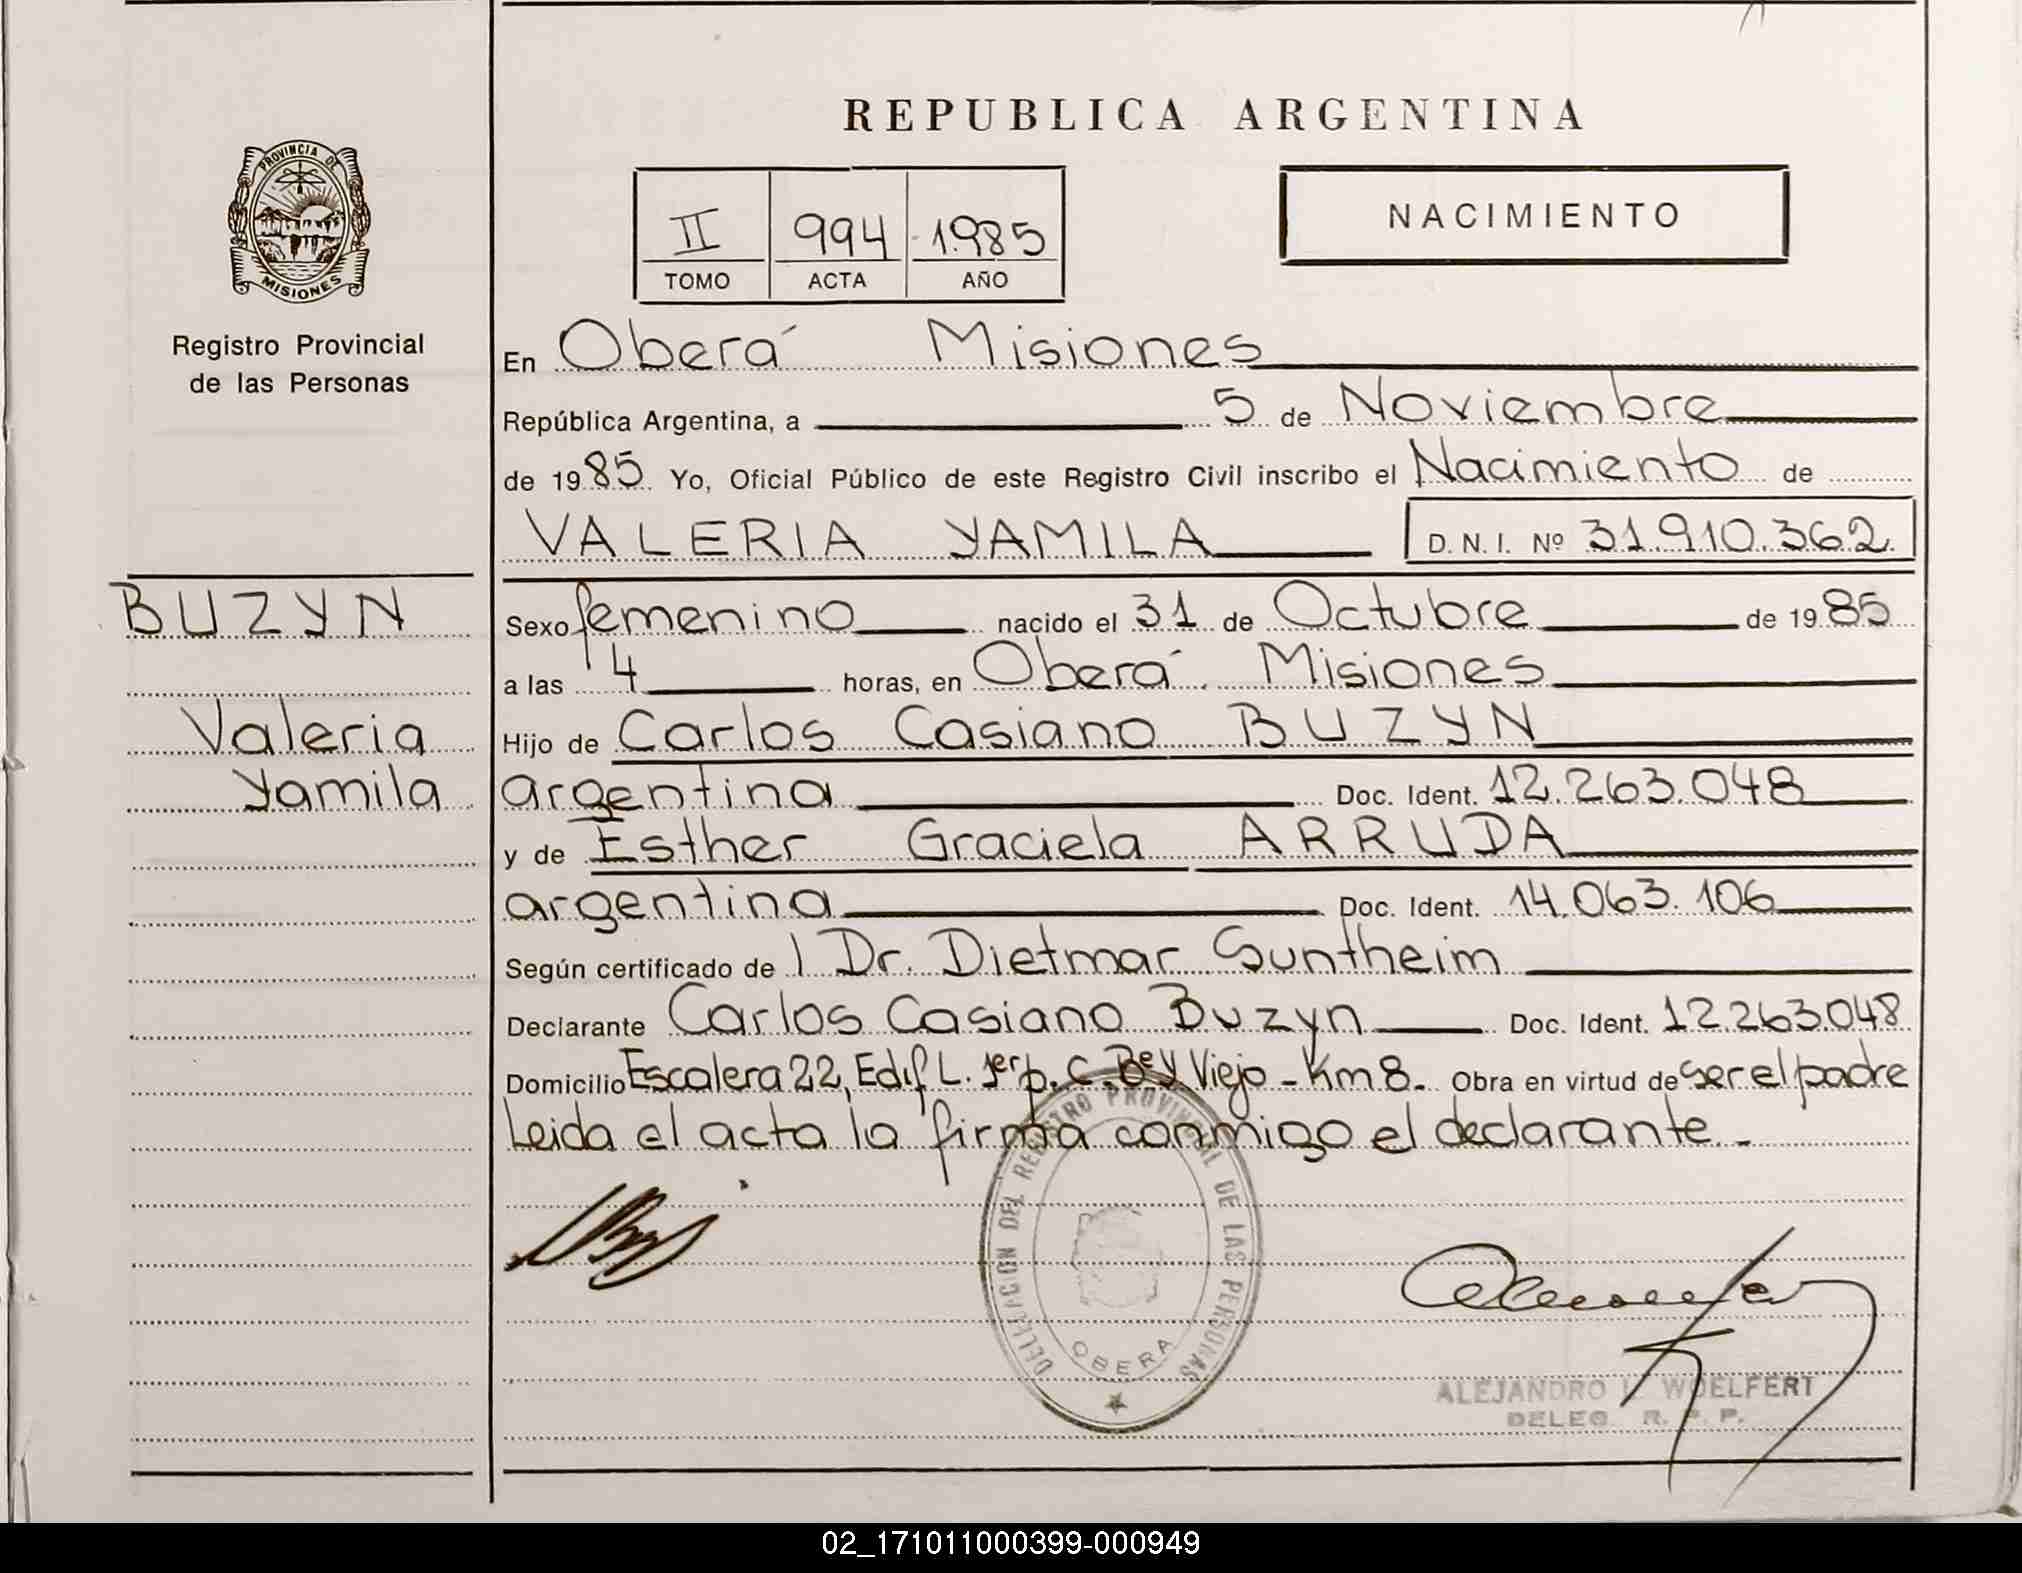 REPUBLICA ARGENTINA
PROVINCIA DE
MISIONES
Registro Provincial
de las Personas
II 994 1.985
TOMO ACTA AÑO
NACIMIENTO
En Oberá Misiones
República Argentina, a 5 de Noviembre
de 1985 Yo, Oficial Público de este Registro Civil inscribo el Nacimiento de
VALERIA YAMILA D. N. I. Nº 31.910.362
BUZYN
Sexo femenino nacido el 31 de Octubre de 1985
a las 4 horas, en Oberá Misiones
Valeria
Hijo de Carlos Casiano BUZYN
Yamila
argentina Doc. Ident. 12.263.048
y de Esther Graciela ARRUDA
argentina Doc. Ident. 14.063.106
Según certificado de l Dr. Dietmar Suntheim
Declarante Carlos Casiano Buzyn Doc. Ident. 12.263.048
Domicilio Escalera 22, Edif L. 1er p. C. Viejo - Km 8. Obra en virtud de ser el padre
Leida el acta la firma conmigo el declarante.-
DELEGACION DEL REGISTRO PROVINCIAL DE LAS PERSONAS
OBERA
ALEJANDRO WOELFERT
DELEG. R. P. P.
02_171011000399-000949